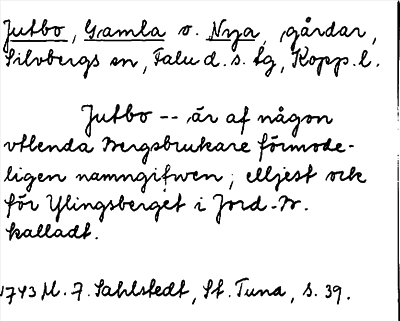 Jutbo, Gamla o. Nya, gårdar,
Silvbergs sn, Falu d. s. lg, Kopp. l.
Jutbo -- är af någon
vtlenda Bergsbrukare förmode-
ligen namngifwen; elljest ock
för Ylingsberget i Jord-Br.
kalladt.
1743 M. F. Sahlstedt, St. Tuna, s. 39.